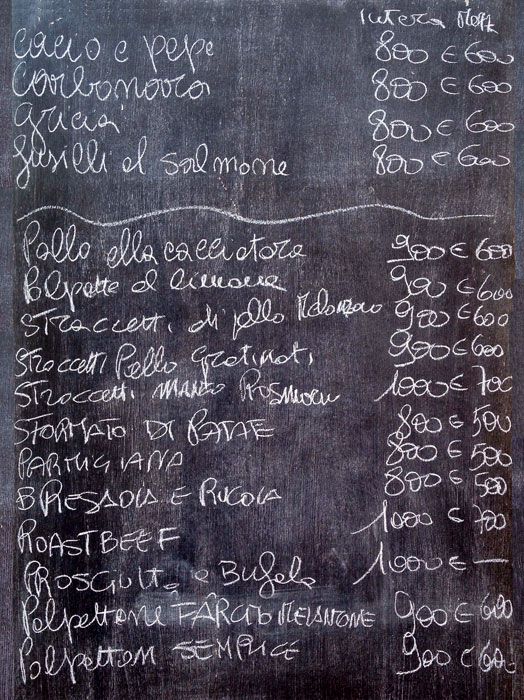 intera Mezz
cacio e pepe 800 € 600
Carbonara 800 € 600
gricia 800 € 600
fusilli al salmone 800 € 600
Pollo alla cacciatora 900 € 600
Polpette al limone 900 € 600
STRACCETTI di pollo Melanzane 900 € 600
STRACCETTI Pollo Gratinati 900 € 600
STRACCETTI MANZO ROSMARI 1000 € 700
SFORMATO DI PATATE 800 € 500
PARMIGIANA 800 € 500
BRESAOLA E RUCOLA 800 € 500
ROASTBEEF 1000 € 700
PROSCIUTTO e Bufala 1000 € —
Polpettone FARCITO MELANZANE 900 € 600
Polpettone SEMPLICE 900 € 600